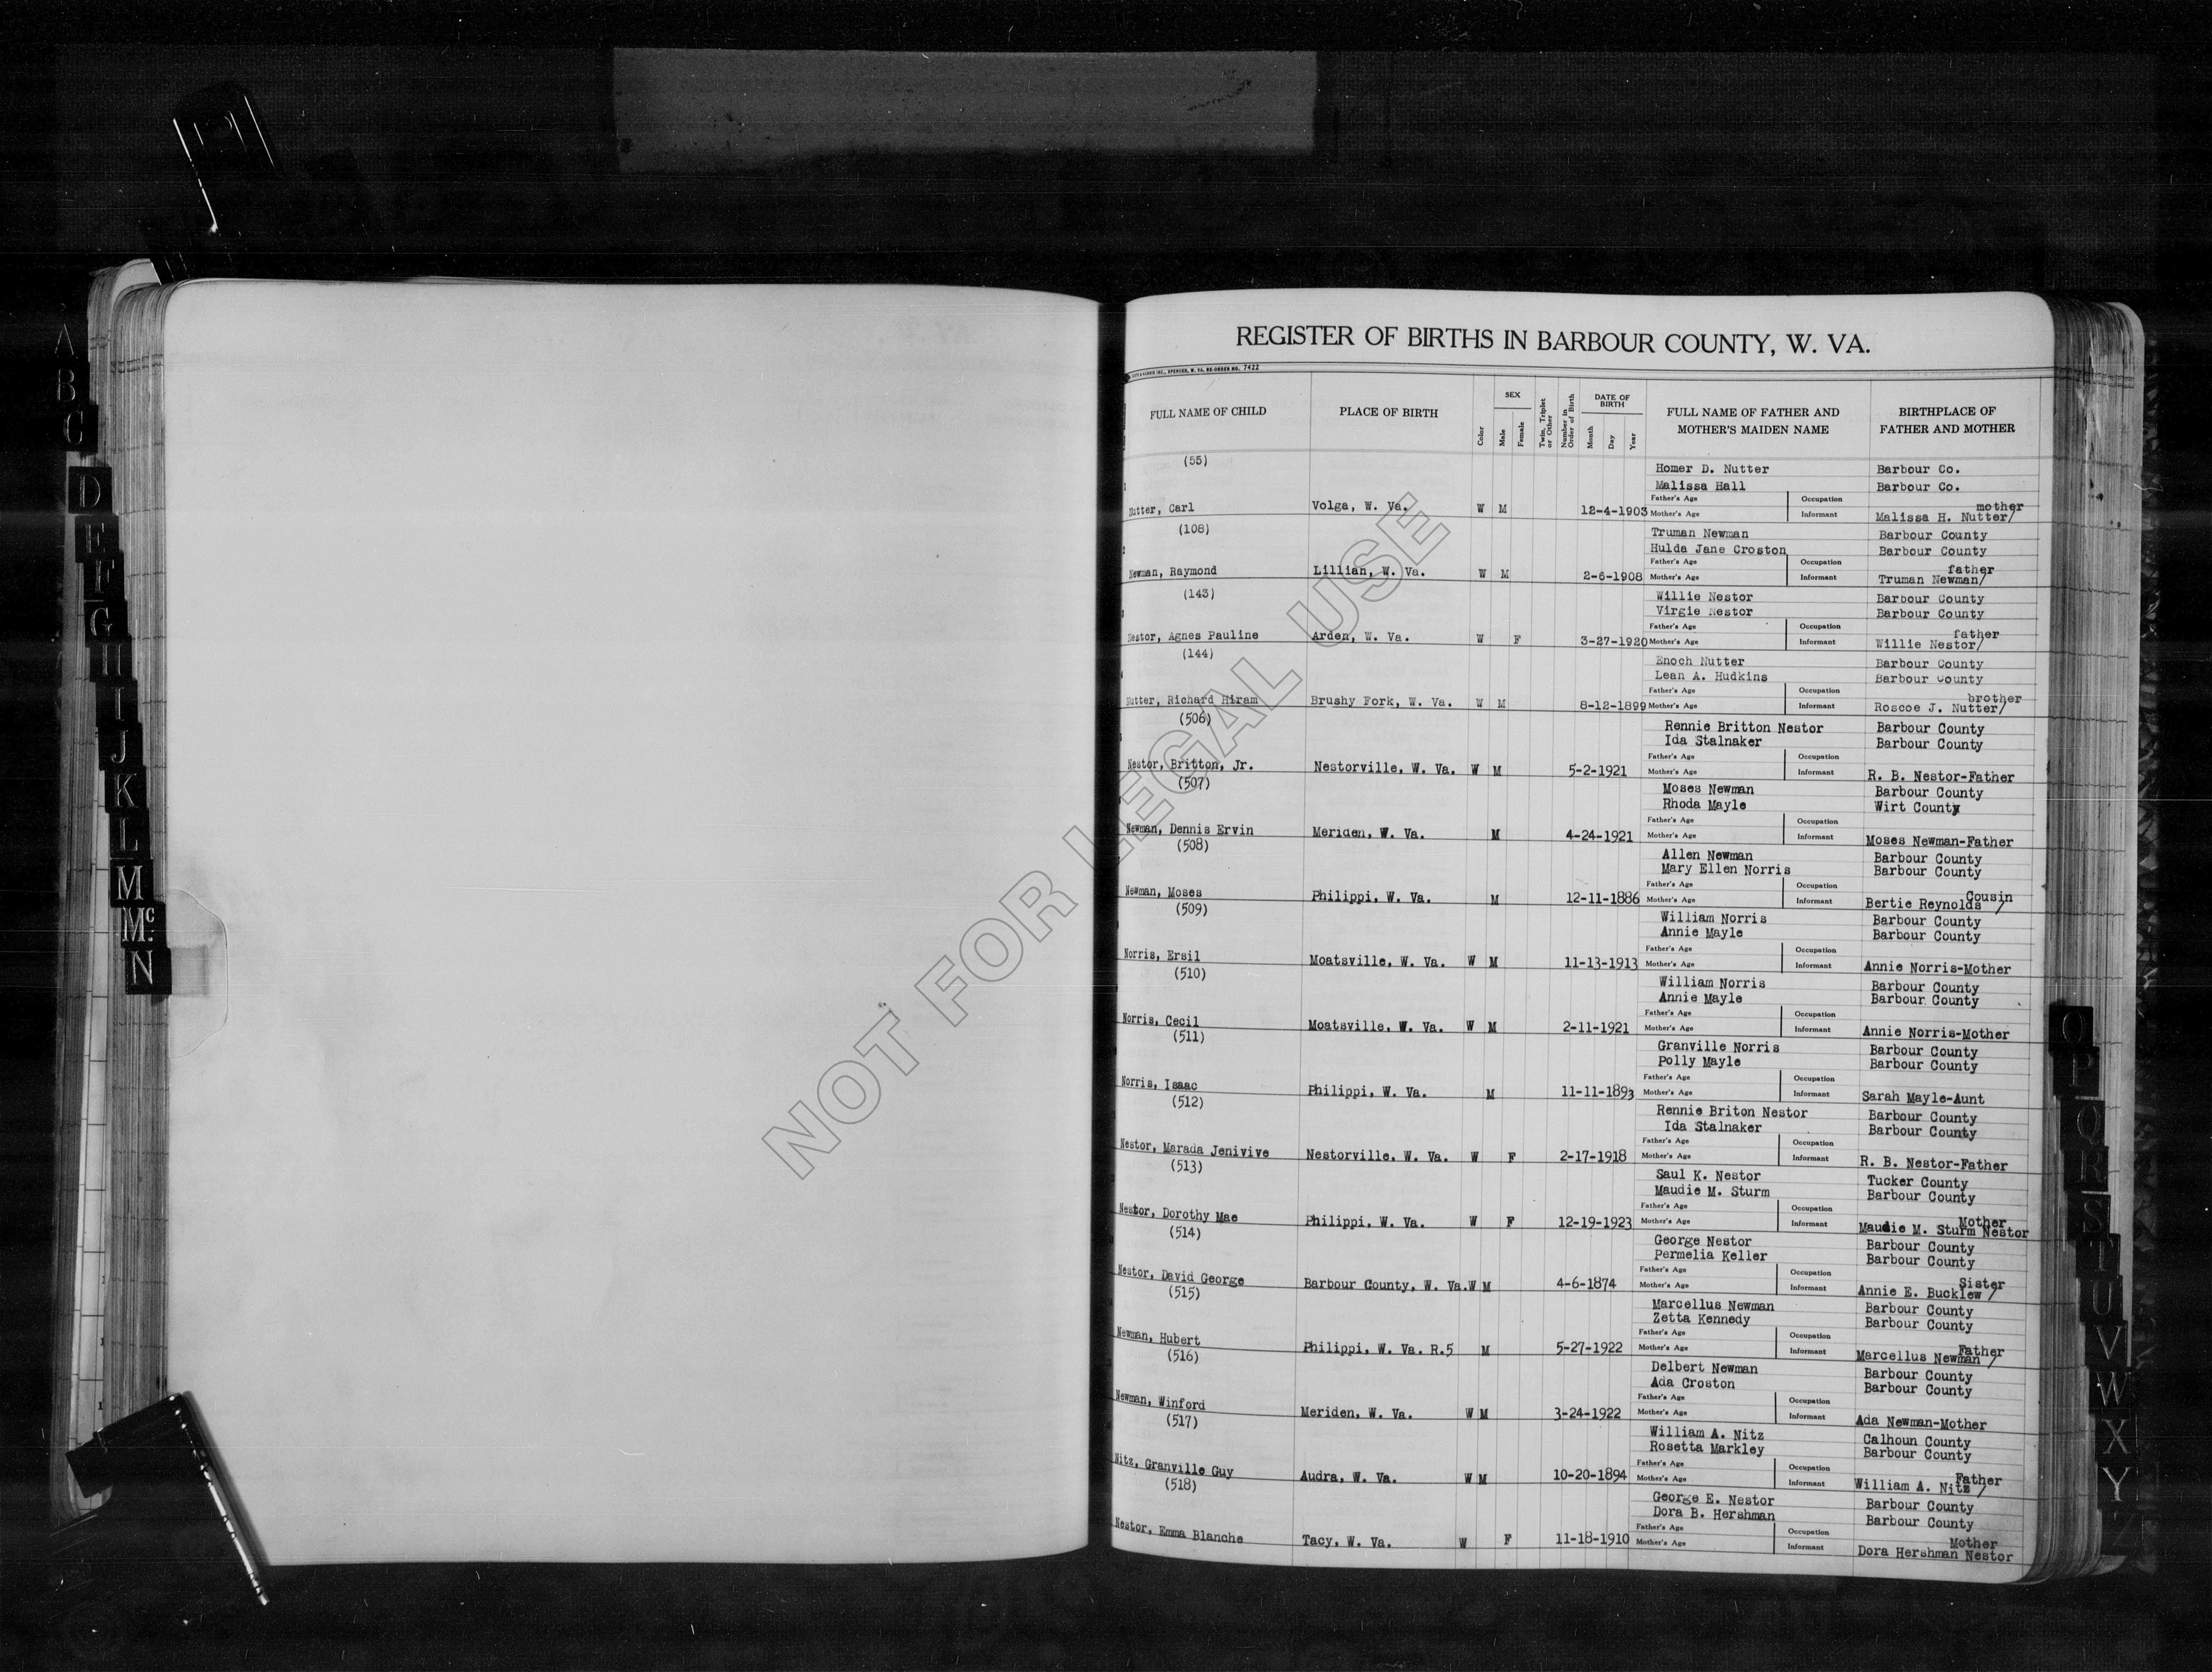 REGISTER OF BIRTHS IN BARBOUR COUNTY, W. VA.
SPENCER, W. VA. RE-ORDER NO. 7422
FULL NAME OF CHILD PLACE OF BIRTH Color SEX Male Female Twin, Triplet or Other Number in Order of Birth DATE OF BIRTH Month Day Year FULL NAME OF FATHER AND MOTHER'S MAIDEN NAME BIRTHPLACE OF FATHER AND MOTHER
(55)
Homer D. Nutter Barbour Co.
Malissa Hall Barbour Co.
Father's Age Occupation mother
Nutter, Carl Volga, W. Va. W M 12-4-1903 Mother's Age Informant Malissa H. Nutter/
(108)
Truman Newman Barbour County
Hulda Jane Croston Barbour County
Father's Age Occupation father
Newman, Raymond Lillian, W. Va. W M 2-6-1908 Mother's Age Informant Truman Newman/
(143)
Willie Nestor Barbour County
Virgie Nestor Barbour County
Father's Age Occupation father
Nestor, Agnes Pauline Arden, W. Va. W F 3-27-1920 Mother's Age Informant Willie Nestor/
(144)
Enoch Nutter Barbour County
Lean A. Hudkins Barbour County
Father's Age Occupation brother
Nutter, Richard Hiram Brushy Fork, W. Va. W M 8-12-1899 Mother's Age Informant Roscoe J. Nutter/
(506)
Rennie Britton Nestor Barbour County
Ida Stalnaker Barbour County
Father's Age Occupation
Nestor, Britton, Jr. Nestorville, W. Va. W M 5-2-1921 Mother's Age Informant R. B. Nestor-Father
(507)
Moses Newman Barbour County
Rhoda Mayle Wirt County
Father's Age Occupation
Newman, Dennis Ervin Meriden, W. Va. M 4-24-1921 Mother's Age Informant Moses Newman-Father
(508)
Allen Newman Barbour County
Mary Ellen Norris Barbour County
Father's Age Occupation Cousin
Newman, Moses Philippi, W. Va. M 12-11-1886 Mother's Age Informant Bertie Reynolds /
(509)
William Norris Barbour County
Annie Mayle Barbour County
Father's Age Occupation
Norris, Ersil Moatsville, W. Va. W M 11-13-1913 Mother's Age Informant Annie Norris-Mother
(510)
William Norris Barbour County
Annie Mayle Barbour County
Father's Age Occupation
Norris, Cecil Moatsville, W. Va. W M 2-11-1921 Mother's Age Informant Annie Norris-Mother
(511)
Granville Norris Barbour County
Polly Mayle Barbour County
Father's Age Occupation
Norris, Isaac Philippi, W. Va. M 11-11-1893 Mother's Age Informant Sarah Mayle-Aunt
(512)
Rennie Briton Nestor Barbour County
Ida Stalnaker Barbour County
Father's Age Occupation
Nestor, Marada Jenivive Nestorville, W. Va. W F 2-17-1918 Mother's Age Informant R. B. Nestor-Father
(513)
Saul K. Nestor Tucker County
Maudie M. Sturm Barbour County
Father's Age Occupation Mother
Nestor, Dorothy Mae Philippi, W. Va. W F 12-19-1923 Mother's Age Informant Maudie M. Sturm Nestor
(514)
George Nestor Barbour County
Permelia Keller Barbour County
Father's Age Occupation Sister
Nestor, David George Barbour County, W. Va. W M 4-6-1874 Mother's Age Informant Annie E. Bucklew /
(515)
Marcellus Newman Barbour County
Zetta Kennedy Barbour County
Father's Age Occupation Father
Newman, Hubert Philippi, W. Va. R.5 M 5-27-1922 Mother's Age Informant Marcellus Newman /
(516)
Delbert Newman Barbour County
Ada Croston Barbour County
Father's Age Occupation
Newman, Winford Meriden, W. Va. W M 3-24-1922 Mother's Age Informant Ada Newman-Mother
(517)
William A. Nitz Calhoun County
Rosetta Markley Barbour County
Father's Age Occupation Father
Nitz, Granville Guy Audra, W. Va. W M 10-20-1894 Mother's Age Informant William A. Nitz /
(518)
George E. Nestor Barbour County
Dora B. Hershman Barbour County
Father's Age Occupation Mother
Nestor, Emma Blanche Tacy, W. Va. W F 11-18-1910 Mother's Age Informant Dora Hershman Nestor
NOT FOR LEGAL USE
A
B
C
D
E
F
G
H
I
J
K
L
M
Mc
N
O
P
Q
R
S
T
U
V
W
X
Y
Z